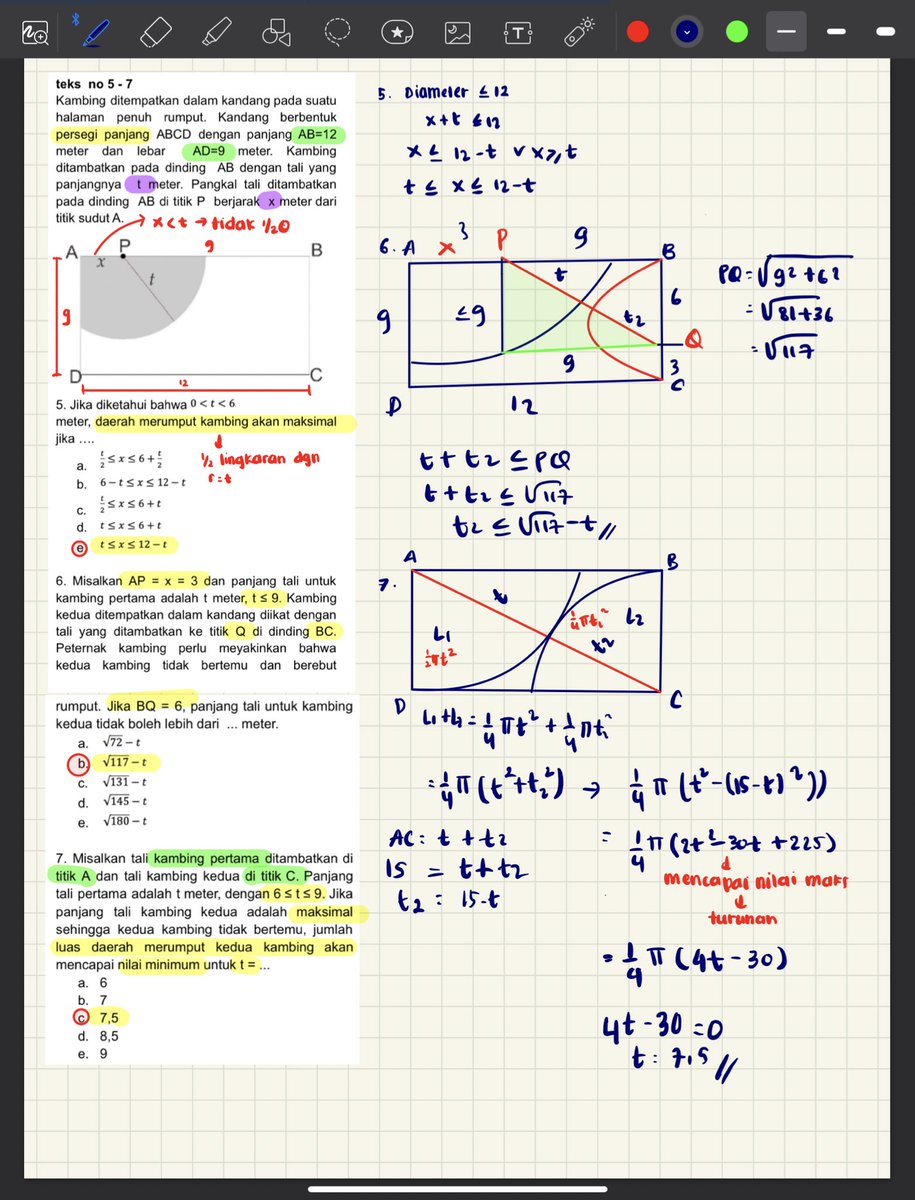 teks no 5 - 7
Kambing ditempatkan dalam kandang pada suatu
halaman penuh rumput. Kandang berbentuk
persegi panjang ABCD dengan panjang AB=12
meter dan lebar AD=9 meter. Kambing
ditambatkan pada dinding AB dengan tali yang
panjangnya t meter. Pangkal tali ditambatkan
pada dinding AB di titik P berjarak x meter dari
titik sudut A.
x<t → tidak 1/2 O
A P 9 B
x
t
9
D C
12
5. Jika diketahui bahwa 0 < t < 6
meter, daerah merumput kambing akan maksimal
jika ....
1/2 lingkaran dgn
r = t
a. t/2 ≤ x ≤ 6 + t/2
b. 6 − t ≤ x ≤ 12 − t
c. t/2 ≤ x ≤ 6 + t
d. t ≤ x ≤ 6 + t
e. t ≤ x ≤ 12 − t
6. Misalkan AP = x = 3 dan panjang tali untuk
kambing pertama adalah t meter, t ≤ 9. Kambing
kedua ditempatkan dalam kandang diikat dengan
tali yang ditambatkan ke titik Q di dinding BC.
Peternak kambing perlu meyakinkan bahwa
kedua kambing tidak bertemu dan berebut
rumput. Jika BQ = 6, panjang tali untuk kambing
kedua tidak boleh lebih dari ... meter.
a. √72 − t
b. √117 − t
c. √131 − t
d. √145 − t
e. √180 − t
7. Misalkan tali kambing pertama ditambatkan di
titik A dan tali kambing kedua di titik C. Panjang
tali pertama adalah t meter, dengan 6 ≤ t ≤ 9. Jika
panjang tali kambing kedua adalah maksimal
sehingga kedua kambing tidak bertemu, jumlah
luas daerah merumput kedua kambing akan
mencapai nilai minimum untuk t = ...
a. 6
b. 7
c. 7,5
d. 8,5
e. 9
5. Diameter ≤ 12
x+t ≤ 12
x ≤ 12-t v x ≥ t
t ≤ x ≤ 12-t
6. A x 3 P 9 B
t
9 ≤9 t2 6
Q
9 3
D 12 C
PQ = √9²+6²
= √81+36
= √117
t + t2 ≤ PQ
t + t2 ≤ √117
t2 ≤ √117-t //
7.
A B
t
L1 1/4πt₁² L2
1/2πt² t2
D C
L1+L2 = 1/4 πt² + 1/4 πt₁²
= 1/4 π (t²+t2²) → 1/4 π (t²-(15-t)²))
AC = t + t2
15 = t + t2
t2 = 15-t
= 1/4 π (2t²-30t +225)
mencapai nilai maks
turunan
= 1/4 π (4t-30)
4t-30 = 0
t = 7,5 //